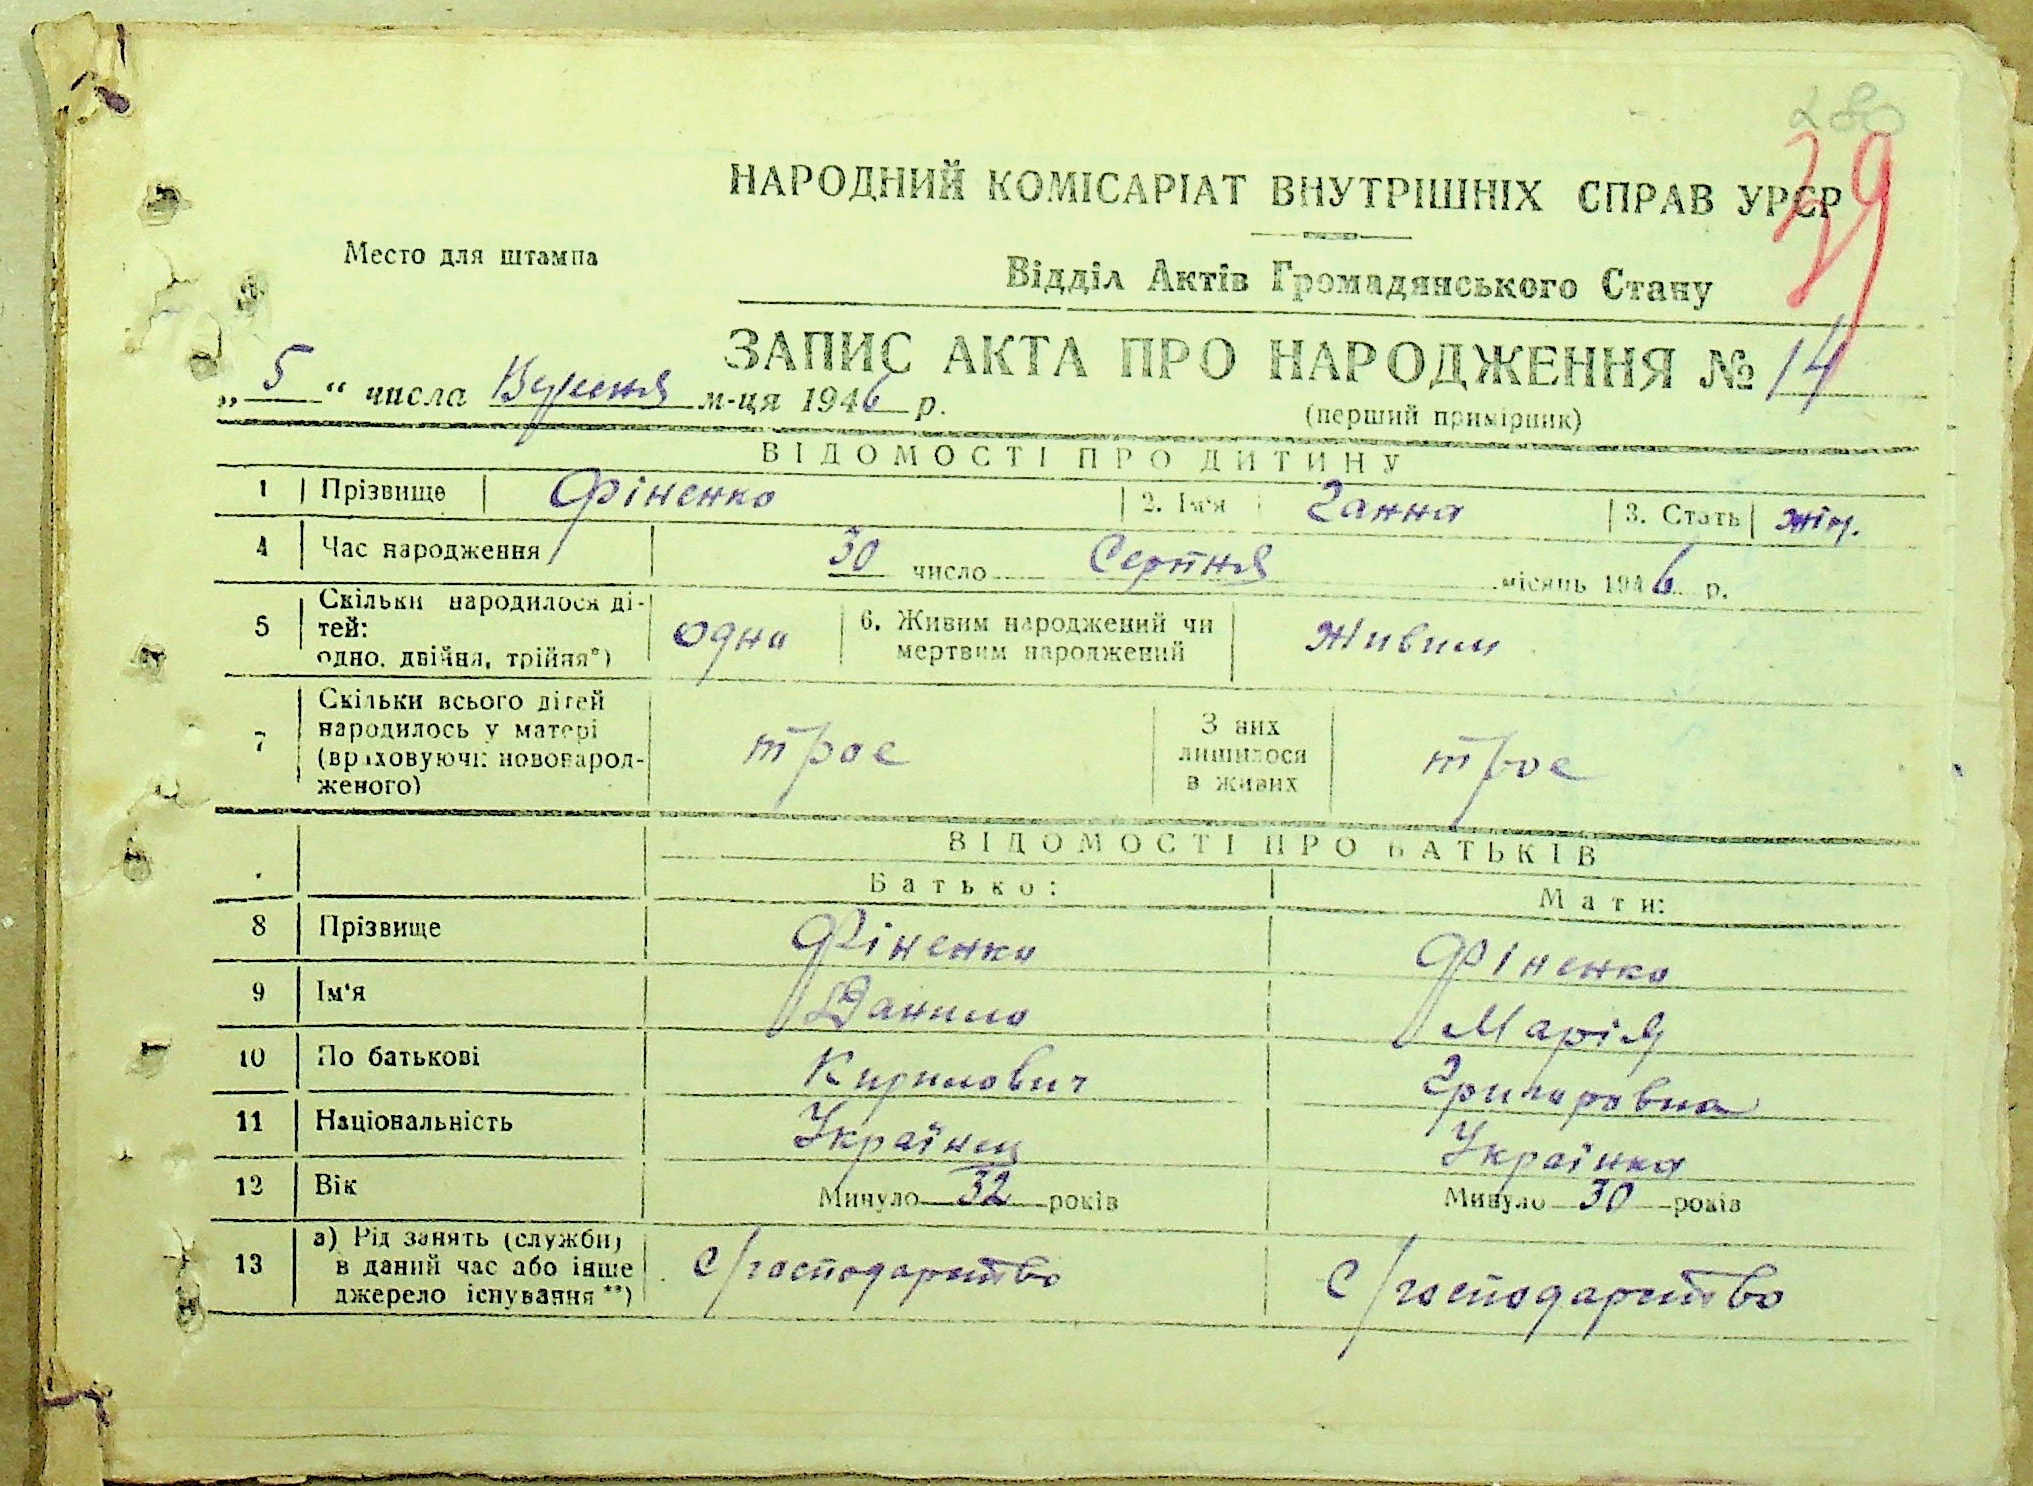 280
39
НАРОДНИЙ КОМІСАРІАТ ВНУТРІШНІХ СПРАВ УРСР
Место для штампа
Відділ Актів Громадянського Стану
ЗАПИС АКТА ПРО НАРОДЖЕННЯ № 14
„ 5 “ числа Вересня м-ця 1946 р.
(перший примірник)
ВІДОМОСТІ ПРО ДИТИНУ
1 Прізвище Фіненко 2. Ім'я Ганна 3. Стать жін.
4 Час народження 30 число Серпня місяць 1946 р.
5 Скільки народилося ді-
тей:
одно, двійня, трійня*) одна 6. Живим народжений чи
мертвим народжений Живим
7 Скільки всього дітей
народилось у матері
(враховуючи новонарод-
женого) троє З них
лишилося
в живих троє
ВІДОМОСТІ ПРО БАТЬКІВ
Батько: Мати:
8 Прізвище Фіненко Фіненко
9 Ім'я Данило Марія
10 По батькові Кирилович Григоровна
11 Національність Українец Українка
12 Вік Минуло 32 років Минуло 30 років
13 а) Рід занять (служби)
в даний час або інше
джерело існування **) С/господарство С/господарство